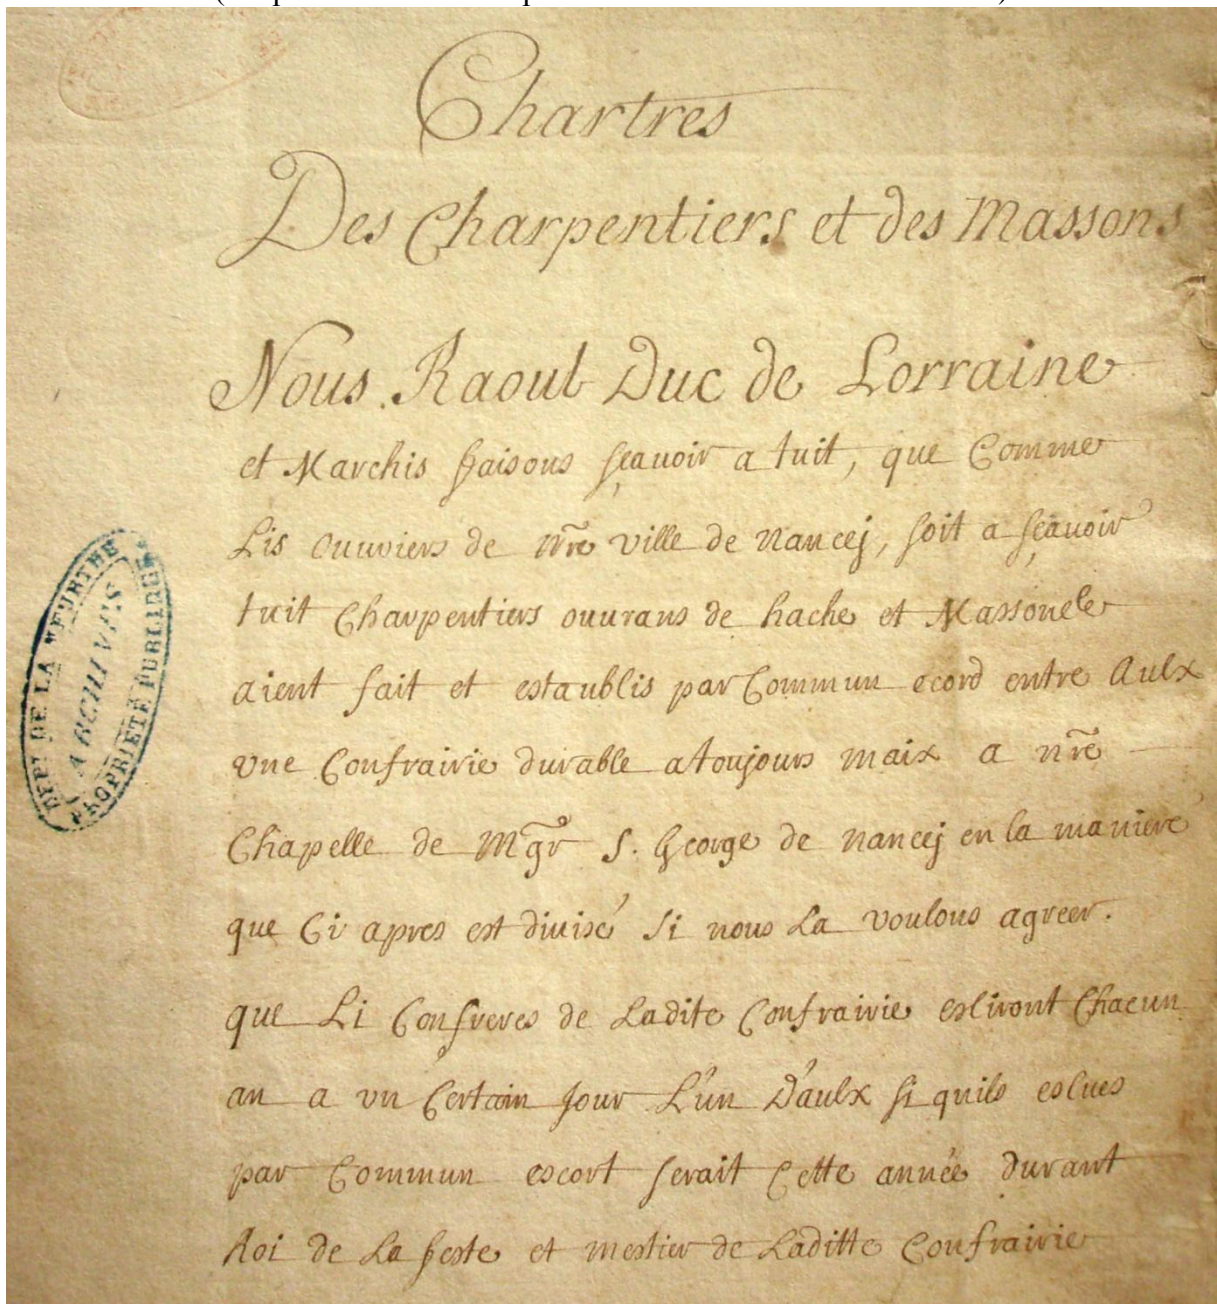 Chartres
Des Charpentiers et des Massons
Nous Raoul Duc de Lorraine
et Marchis faisons sçauoir a tuit, que Comme
Lis ouuriers de nr̃e ville de Nancej, soit a sçauoir
tuit Charpentiers ouurans de hache et Massonele
aient fait et estaublis par Commun ecord entre Aulx
vne Confrairie durable atoujours maix a nr̃e
Chapelle de Mgr̃ S. George de Nancej en la maniere
que Ci apres est divisé Si nous La voulons agreer.
que Li Confreres de Ladite Confrairie esliront Chacun
an a vn Certain Jour L'un D'aulx si quils eslues
par Commun escort serait Cette année durant
Roi de La feste et mestier de Laditte Confrairie
DEPT DE LA MEURTHE
ARCHIVES
PROPRIÉTÉ PUBLIQUE